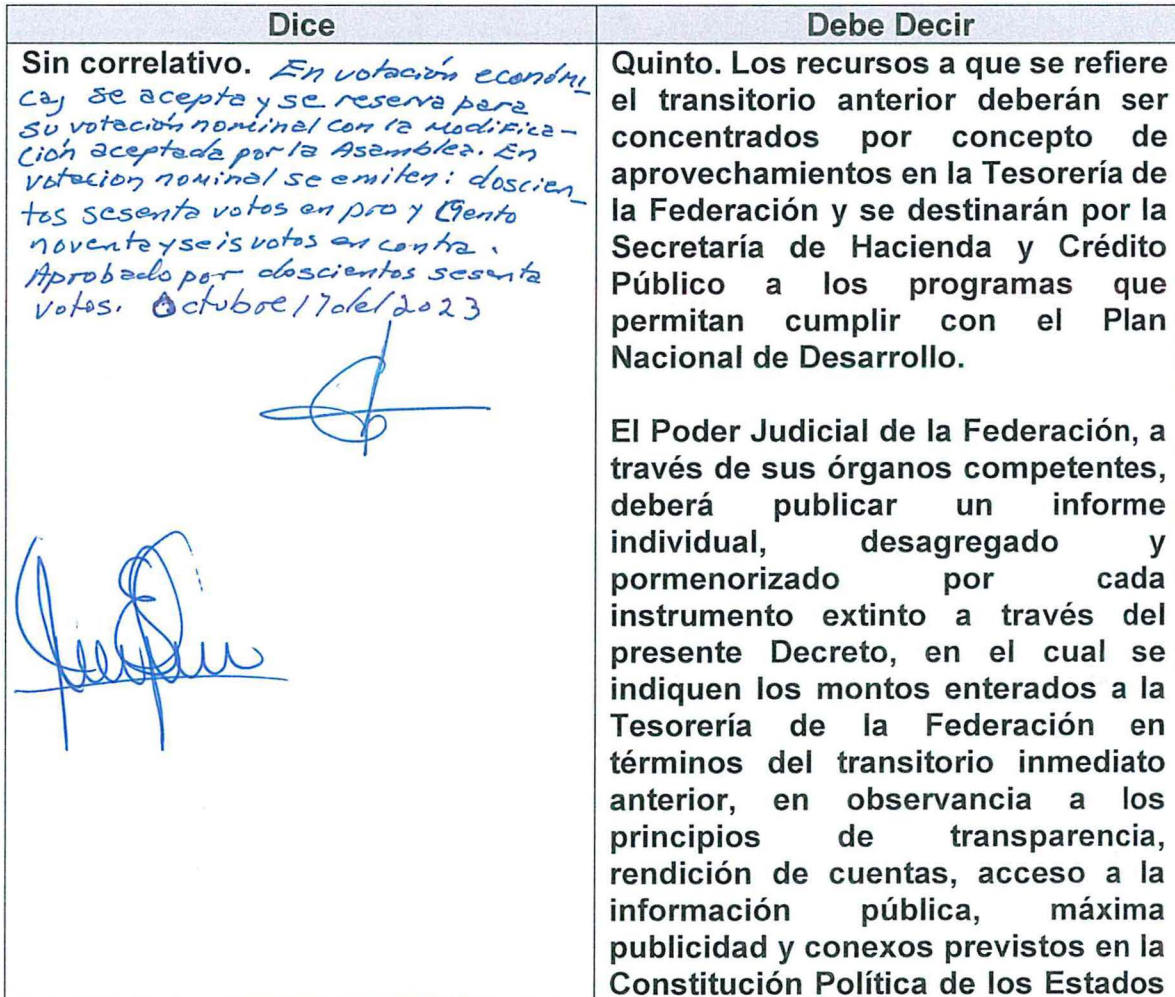 Dice
Sin correlativo. En votación económi_
ca, se acepta y se reserva para
su votación nominal con la modifica-
ción aceptada por la Asamblea. En
votación nominal se emiten: doscien_
tos sesenta votos en pro y Ciento
noventa y seis votos en contra.
Aprobado por doscientos sesenta
votos. Octubre 17 del 2023
Debe Decir
Quinto. Los recursos a que se refiere
el transitorio anterior deberán ser
concentrados por concepto de
aprovechamientos en la Tesorería de
la Federación y se destinarán por la
Secretaría de Hacienda y Crédito
Público a los programas que
permitan cumplir con el Plan
Nacional de Desarrollo.
El Poder Judicial de la Federación, a
través de sus órganos competentes,
deberá publicar un informe
individual, desagregado y
pormenorizado por cada
instrumento extinto a través del
presente Decreto, en el cual se
indiquen los montos enterados a la
Tesorería de la Federación en
términos del transitorio inmediato
anterior, en observancia a los
principios de transparencia,
rendición de cuentas, acceso a la
información pública, máxima
publicidad y conexos previstos en la
Constitución Política de los Estados